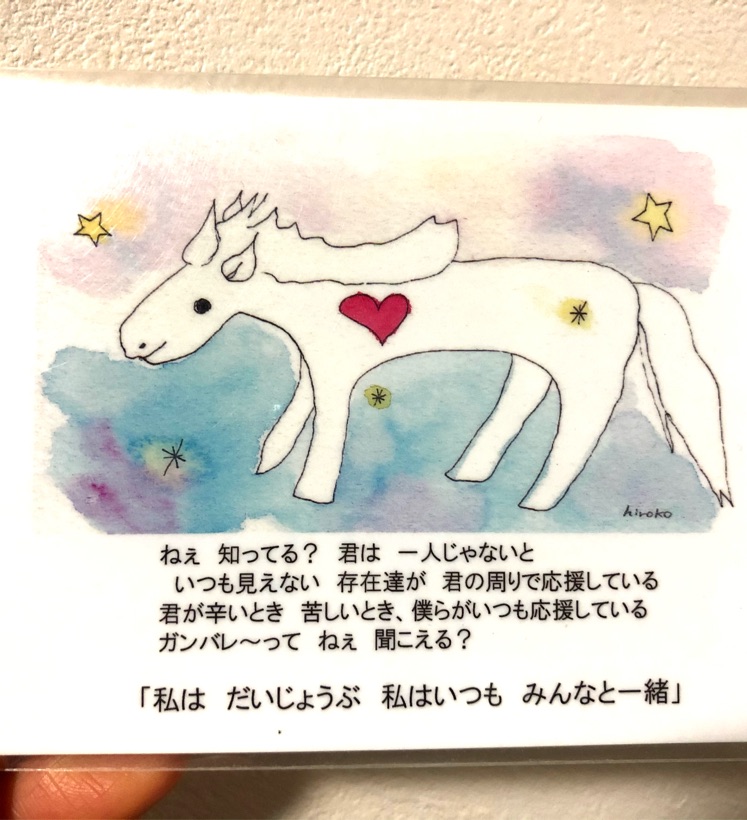 hiroko
ねぇ　知ってる？　君は　一人じゃないと
いつも見えない　存在達が　君の周りで応援している
君が辛いとき　苦しいとき、僕らがいつも応援している
ガンバレ～って　ねぇ　聞こえる？
「私は　だいじょうぶ　私はいつも　みんなと一緒」